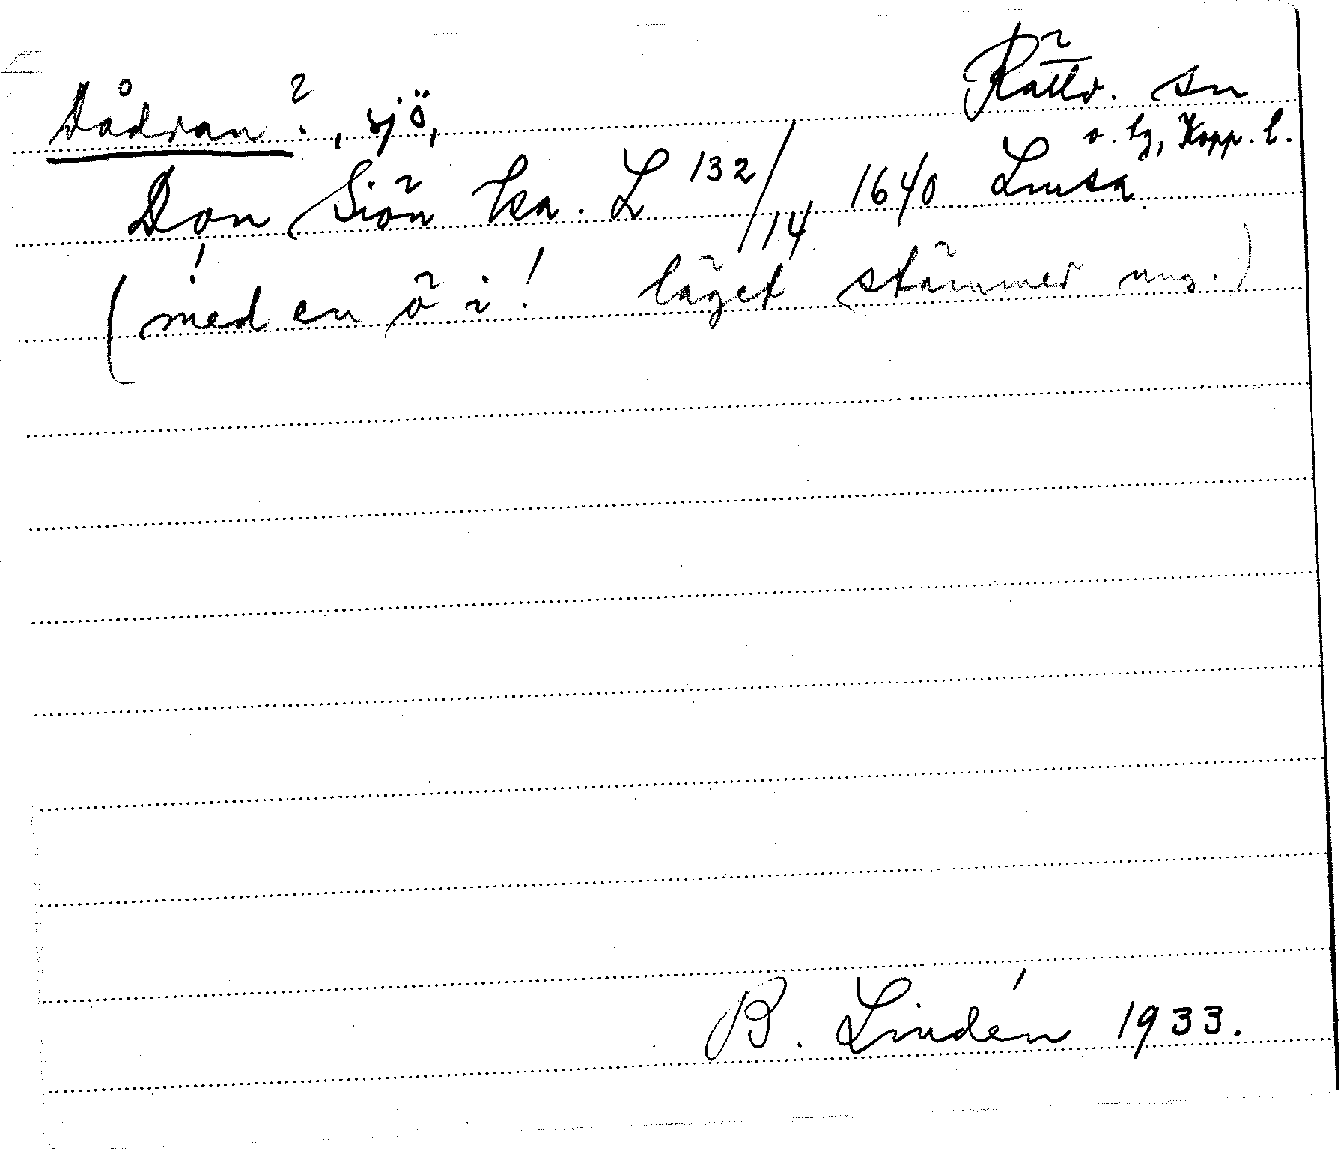 Dådran?, sjö,
Rättv. sn
o. tg, Kopp. l.
Don Siön ka. L 132/14 1640 Lmsa
(med en ö i! läget stämmer ung.)
B. Lindén 1933.